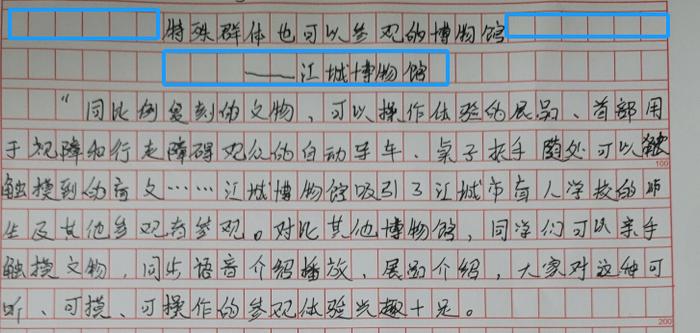 特殊群体也可以参观的博物馆
——江城博物馆
"同比例复刻的文物、可以操作体验的展品、首部用
于视障和行走障碍观众的自动导车、桌子扶手随处可以触
触摸到的盲文……江城博物馆吸引了江城市盲人学校的师
生及其他参观者参观。对比其他博物馆,同学们可以亲手
触摸文物,同步语音介绍播放、展品介绍,大家对这种可
听、可摸、可操作的参观体验兴趣十足。
100
200